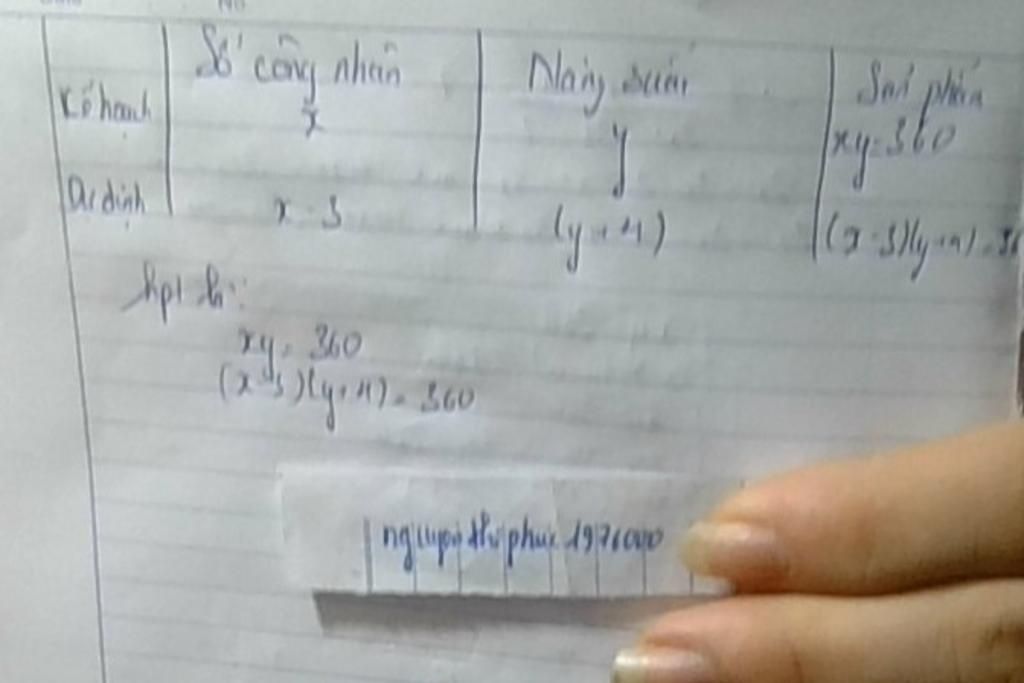 Số công nhân Năng suất Sản phẩm
Kế hoạch x y xy = 360
Dự định x - 3 (y + 4) (x - 3)(y + 4) = 36
hpt là:
xy = 360
(x - 3)(y + 4) = 360
nguyễn thị phúc 1976000